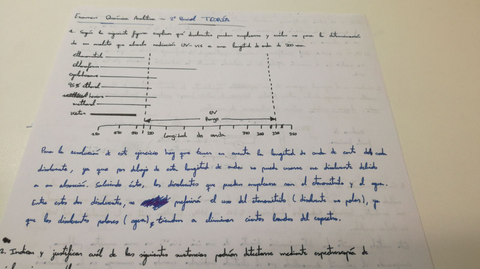 Examen Química Analítica - 2º Parcial TEORÍA
1. Según la siguiente figura explique qué disolventes podrían emplearse y cuáles no para la determinación
de un analito que absorbe radiación UV-vis a una longitud de onda de 200 nm.
Acetonitrilo
Cloroformo
Cyclohexano
95% ethanol
hexano
methanol
water
UV
Range
Longitud de onda
Para la resolución de este ejercicio hay que tener en cuenta la longitud de onda de corte de cada
disolvente, ya que por debajo de esta longitud de onda no puede usarse ese disolvente debido
a su absorción. Sabiendo esto, los disolventes que pueden emplearse son el acetonitrilo y el agua.
Entre estos dos disolventes, se preferirá el uso del acetonitrilo (disolvente no polar), ya
que los disolventes polares (agua) tienden a eliminar ciertas bandas del espectro.
2. Indican y justifican cuál de las siguientes sustancias podrían detectarse mediante espectroscopía de